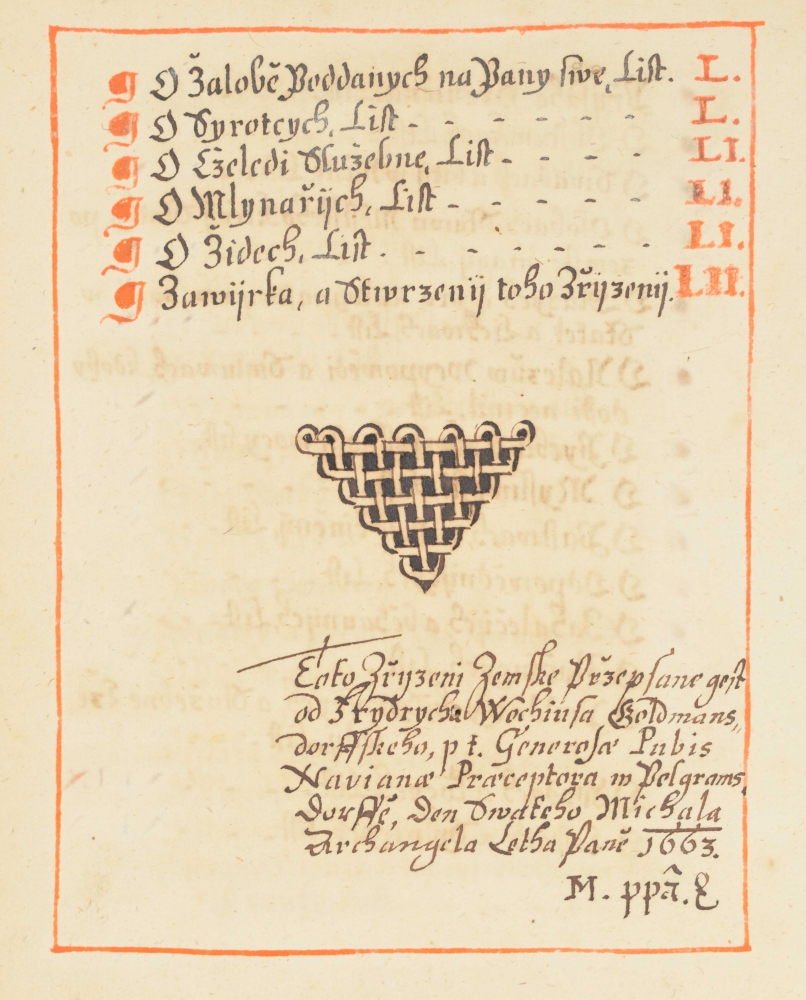 ¶ O Žalobě Poddanych na Pany swe, List. L.
¶ O Syrotcych, List - - - - - - L.
¶ O Cželedi Služebne, List - - - - LI.
¶ O Mlynařijch, List - - - - - LI.
¶ O Židech, List. - - - - - - LI.
¶ Zawijrka, a Stwrzenij toho Zřijzenij. LII.
Toto Zřijzeni Zemske Přzepsane gest
od Frydrycha Wochiusa Goldmans„
dorffskeho, p t. Generosæ Pubis
Navianæ Præceptora w Pelgrams„
dorffě, Den Swateho Michala
Archangela Letha Paně 1663.
M. ppã.